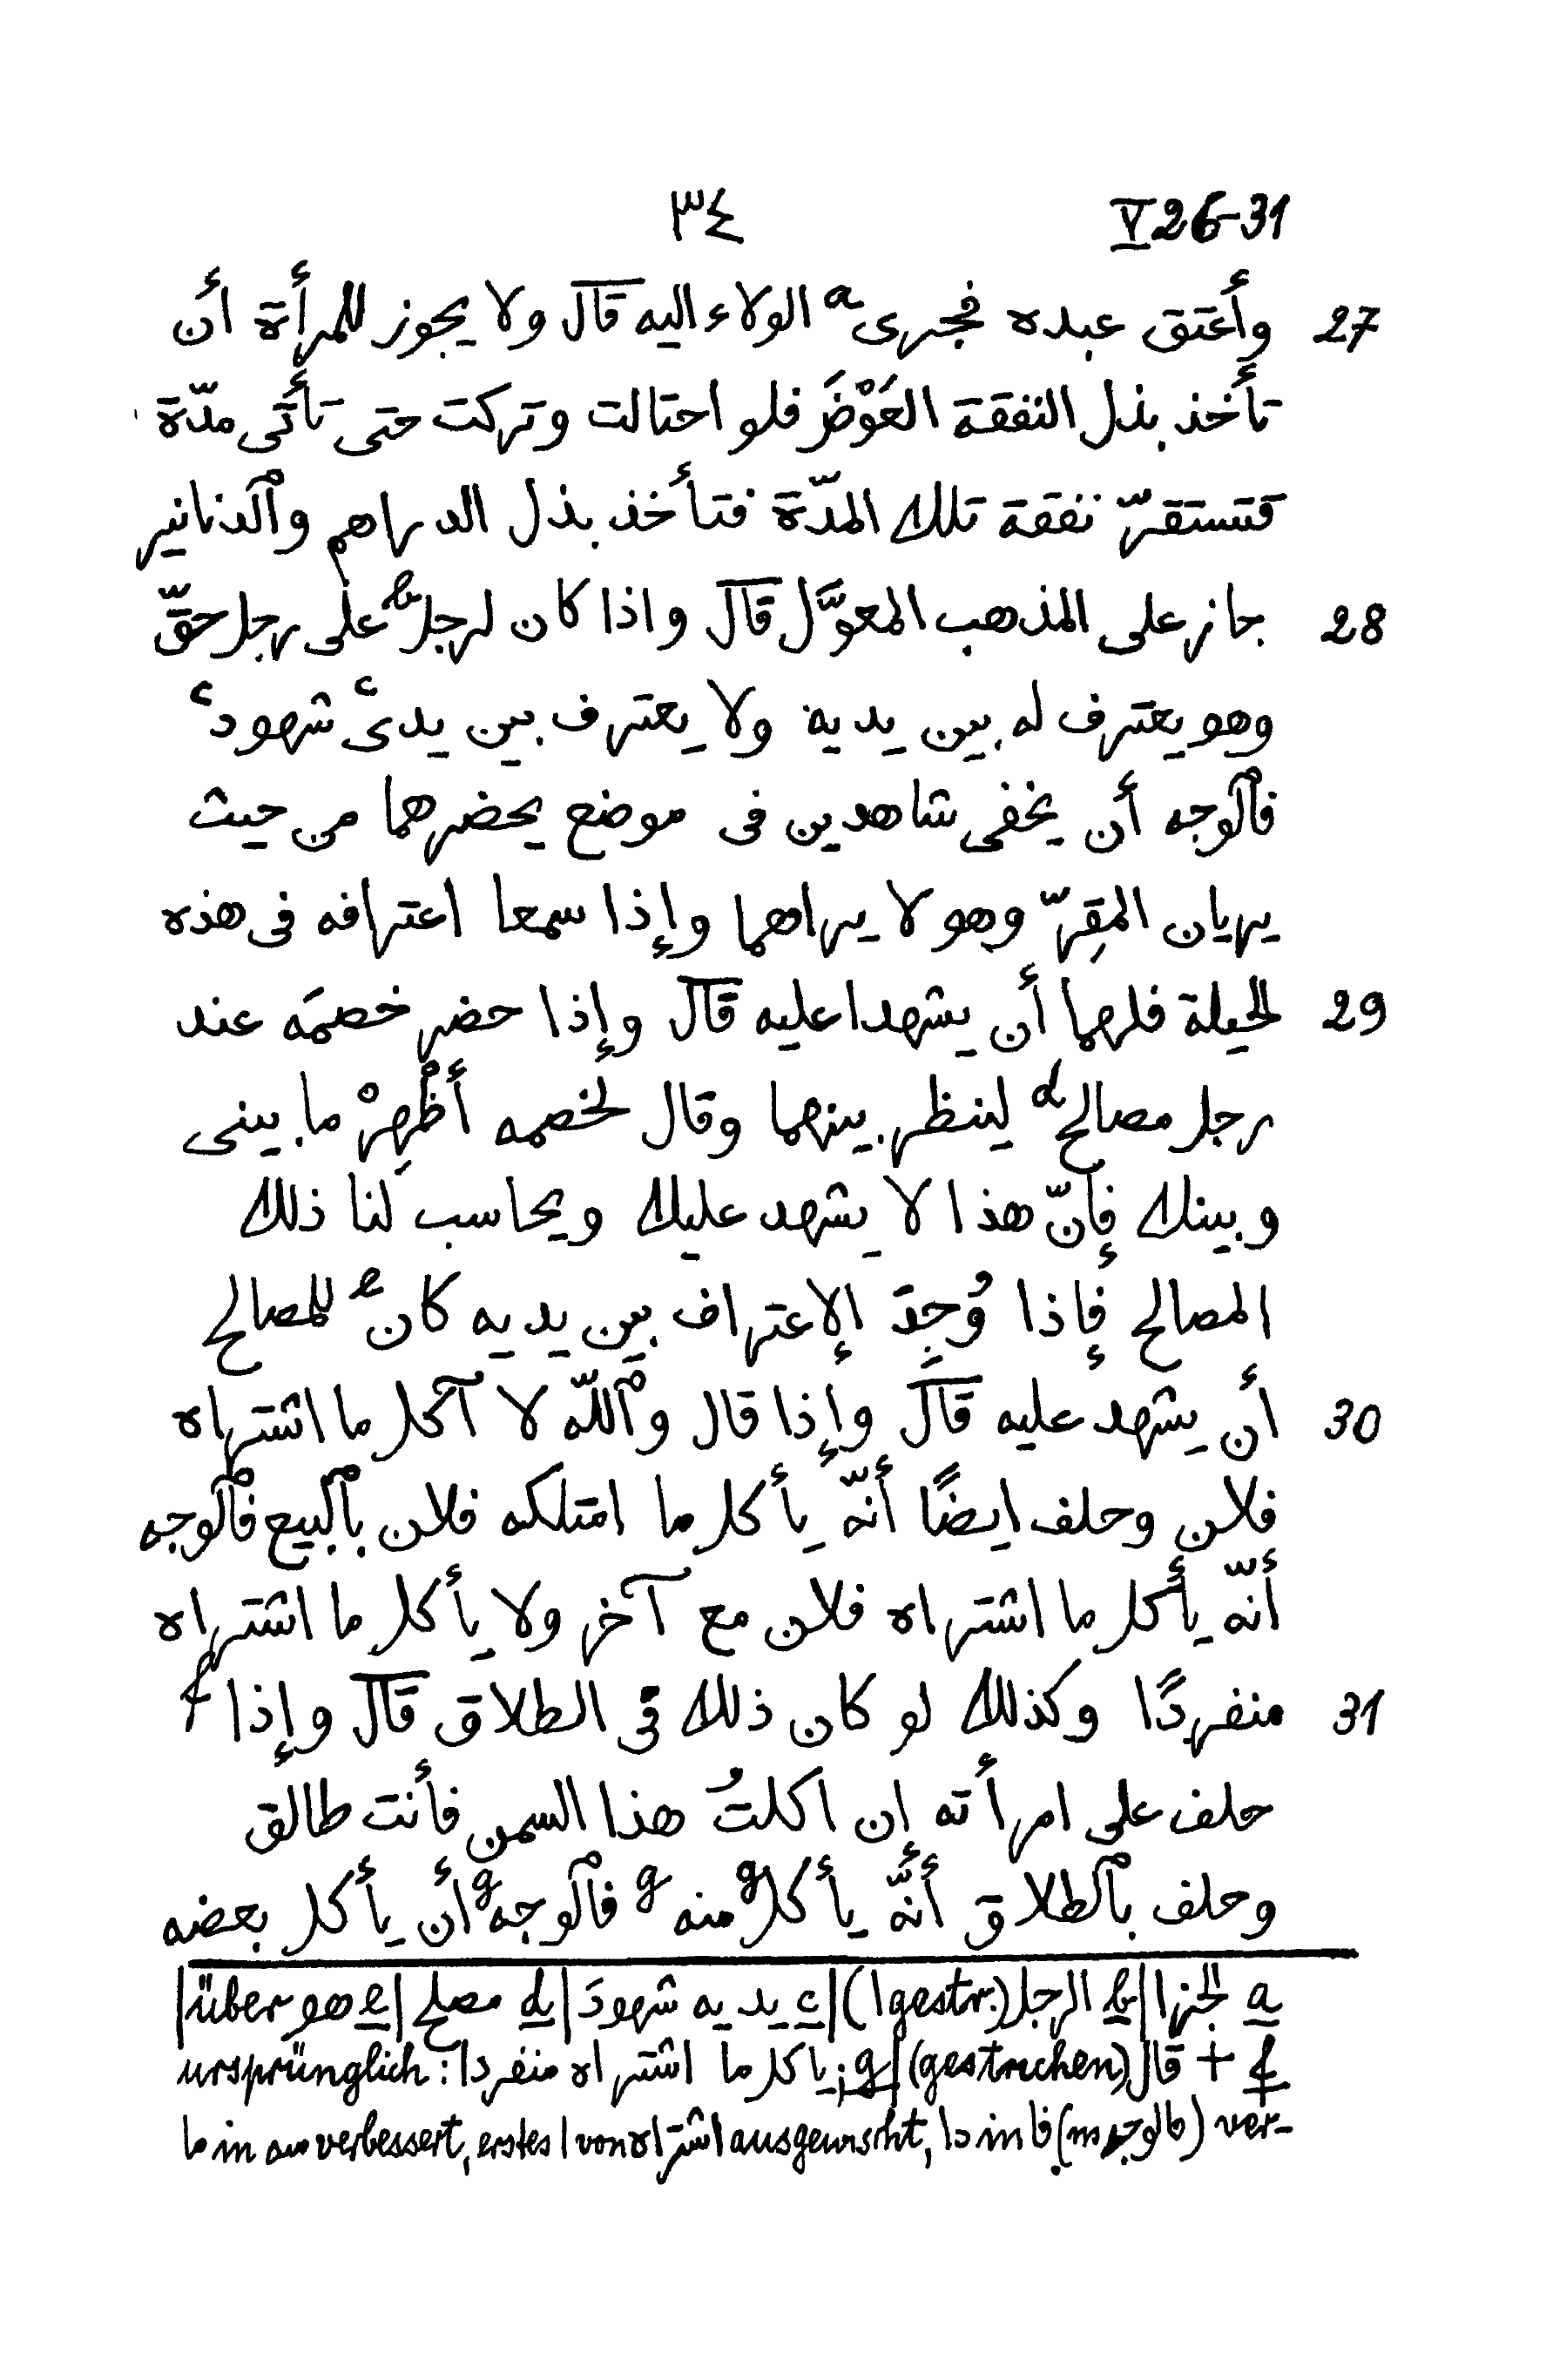 V 26-31 ٣٤
27 وأعتق عبده فجرى a الولاء اليه قال ولا يجوز للمرأة أن
تأخذ بذل النفقة العَوْضَ فلو احتالت وتركت حتى تأتى مدّة
فتستقرّ نفقة تلك المدّة فتأخذ بذل الدراهم وٱلدنانير
28 جاز على المذهب المعوَّل قال واذا كان لرجل b على رجل حقّ
وهو يعترف له بين يديه ولا يعترف بين يدى c شهود c
فٱلوجه أن يخفى شاهدين فى موضع يحضرهما من حيث
يريان المقِرّ وهو لا يراهما وإذا سمعا اعترافه فى هذه
29 الحيلة فلهما أن يشهدا عليه قال وإذا حضر خصمَه عند
رجل مصالح d لينظر بينهما وقال لخصمه أظْهِرْ ما بينى
وبينك فإنّ هذا لا يشهد عليك ويحاسب لنا ذلك
المصالح فإذا وُجِدَ الإعتراف بين يديه كان e للمصالح
30 أن يشهد عليه قال وإذا قال وٱللّه لا آكل ما اشتراه
فلان وحلف ايضًا أنّه يأكل ما امتلكه فلان بٱلبيع فٱلوجه
أنّه يأكل ما اشتراه فلان مع آخر ولا يأكل ما اشتراه
31 منفردًا وكذلك لو كان ذلك فى الطلاق قال وإذا f
حلف على امرأته إن اكلتُ هذا السمن فأنت طالق
وحلف بٱلطلاق أنّه يأكل g منه g فٱلوجه g أن يأكل بعضه
a لجزا | b الرجل (ا gestr.) | c يديه شهودَ | d مصلح | e هو über |
f + قال (gestrichen) | g ياكل ما اشتراه منفردا : ursprünglich;
ما in منه verbessert, erstes ا von اشتراه ausgewischt, دا in فا (فالوجه) ver-